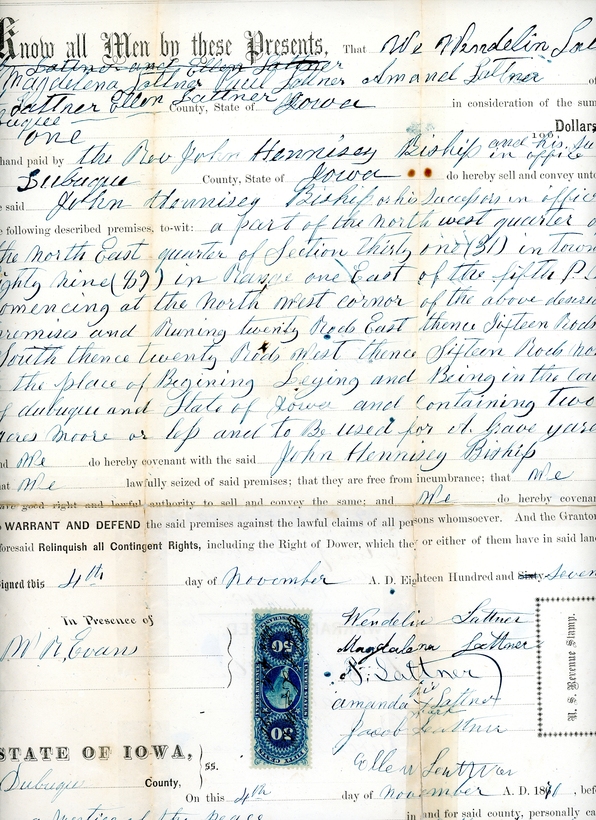 Know all Men by these Presents, That We Wendelin Lat
Lattner and Ellen Lattner
Magdalena Lattner Paul Lattner Amand Lattner
Lattner Ellen Lattner County, State of Iowa in consideration of the sum
one 100 Dollars
hand paid by the Rev John Hennisey Biship and his Su
in office
Dubuque County, State of Iowa do hereby sell and convey unto
e said John Hennisey Biship or his Successors in office
e following described premises, to-wit: a part of the north west quarter o
the North East quarter of Section Thirty one (31) in town
ighty nine (89) in Range one East of the fifth P.
omencing at the North West cornor of the above descri
remises and Runing twenty Rods East thence Sifteen Rods
South thence twenty Rods West thence Sifteen Rods no
the place of Begining Leying and Being in the cou
f dubuque and State of Iowa and containing two
acres moore or less and to Be used for A Grave yard
nd We do hereby covenant with the said John Hennisey Biship
hat We lawfully seized of said premises; that they are free from incumbrance; that We
ave good right and lawful authority to sell and convey the same; and We do hereby covenan
WARRANT AND DEFEND the said premises against the lawful claims of all persons whomsoever. And the Grantor
foresaid Relinquish all Contingent Rights, including the Right of Dower, which they or either of them have in said land
igned this 4th day of November A. D. Eighteen Hundred and Sixty Seven
In Presence of
M R Evans
Wendelin Lattner
Magdalena Lattner
P. Lattner
his
amanda Lattner
mark
Jacob Lattner
Ellen Lattner
U. S. Revenue Stamp.
50
50
STATE OF IOWA,
ss.
Dubuque County,
On this 4th day of November A. D. 1870, befo
a Justice of the peace in and for said county, personally ca